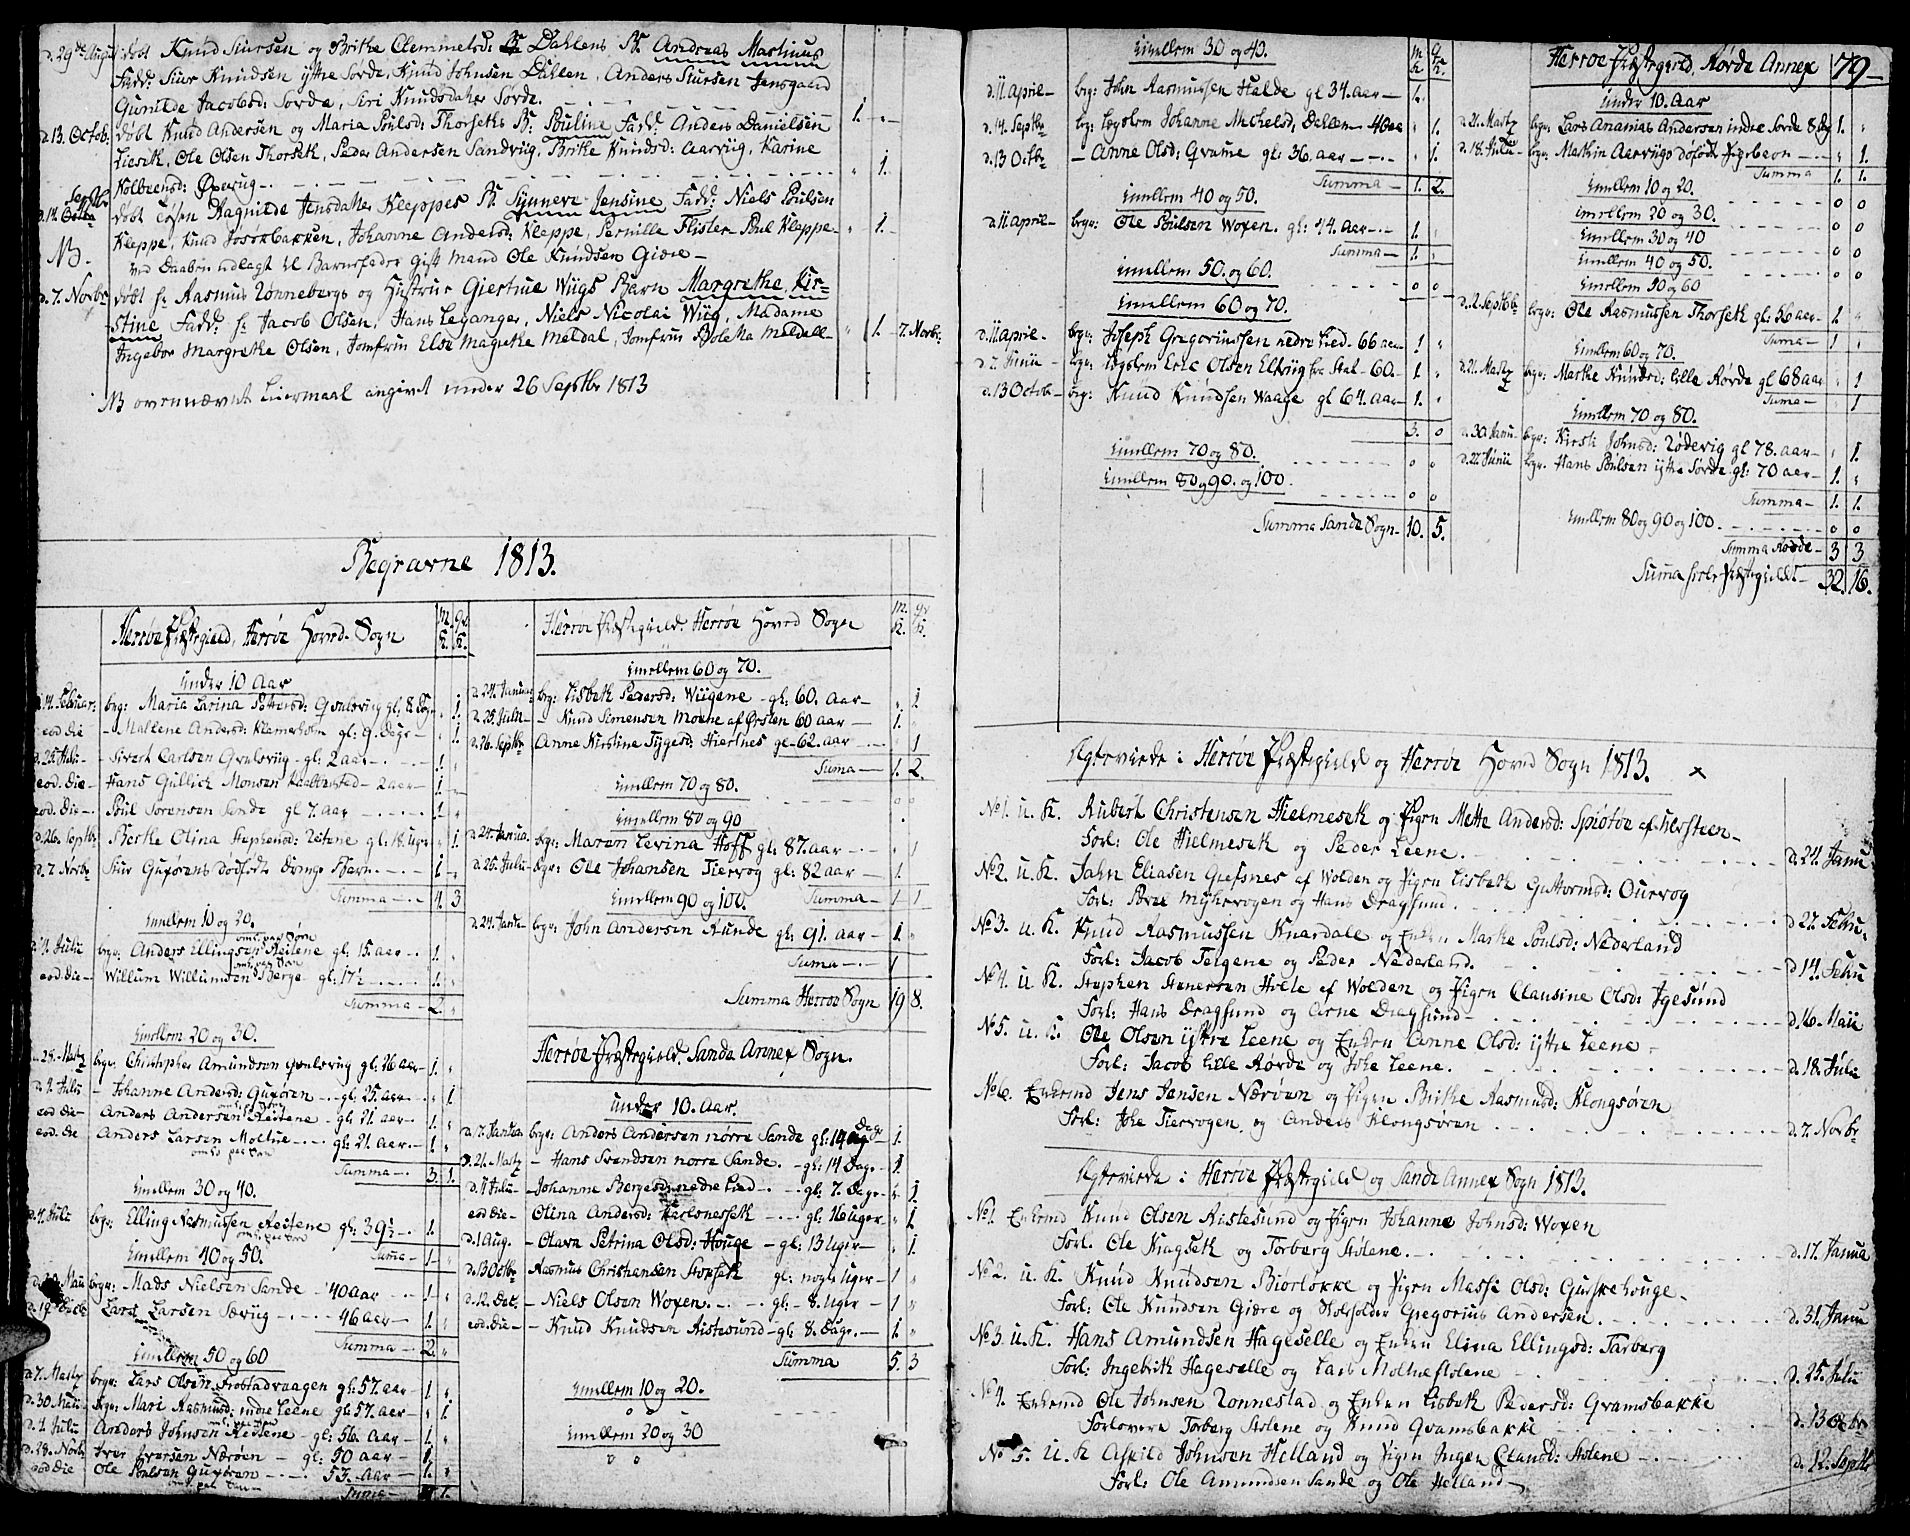 d. 29de Augu døbt Knud Siursen og Brithe Clemmetsd: Dahlens B. Andreas Martinus
Fadd: Siur Knudsen yttre Sørde, Knud Johnsen Dahlen, Anders Siursen Jensgaard
Gunilde Jacobsd: Sørde, Siri Knudsdatter Sørde.
d. 13. Octob: døbt Knud Andersen og Maria Poulsd: Thorseths B. Pouline Fadd: Anders Danielsen
Liesek, Ole Olsen Thorsek, Peder Andersen Sandviig, Brithe Knudsd: Aarviig, Karine
Kolbeensd: Øverug
døbt Løsen Ragnilde Jensdatter Kleppes B. Synneve Jensine Fadd: Niels Poulsen
Kleppe, Knud Josokbakken, Johanne Andersd: Kleppe, Pernille Flister, Poul Kleppe
NB. ved Daaben udlagt til Barnefader gift Mand Ole Knudsen Giøre
d. 7. Novbr døbt hr Rasmus Rønnebergs og Hustrue Giertrue Wiigs Barn Margrethe Kir-
stine Fadd: hr Jacob Olsen, Hans Leganger, Niels Nicolai Wiig, Madame
Ingebor Margrethe Olsen, Jomfrue Else Magrethe Meldal, Jomfrue Boletha Meldell 1. 7. Novbr:
NB ovennævnt Leiermaal angivet under 26 Septbr 1813
Begravne 1813.
Herrøe Præstegield, Herrøe Hoved Sogn
under 10 Aar
d. 14. Februar: begr: Maria Larina Pettersd: Gvalsviig gl. 8 Dage 1.
eod die - Mallene Andersd: Klamerholm gl: 9 Dage 1.
d. 25. Julii - Sivert Carlsen Gvalsviig gl: 2 aar 1.
eod. die - Hans Gullick Monsen 2 aar 1.
eod. die - Poul Sørensen Sande gl 7. aar 1.
d. 26. Septbr Berthe Olina Stephensd: Leitene gl: 18. Uger 1.
d. 7 Novbr Siur Guxørens dødfødte Drenge Barn 1.
Summa 4. 3
Imellem 10 og 20.
d. 4. Julii begr: Anders Ellingsen Reitene gl: 15. aar 1.
omk: paa Søen
eod die - Willum Willumsen Berge gl: 17½ 1.
Summa 2.
Imellem 20 og 30.
d. 28. Martz begr. Christopher Amundsen Gvalsviig gl: 26 aar 1.
d. 4. Julii - Johanne Andersd: Guxøren gl: 25. aar 1.
eod die Anders Andersen Reitene gl: 21. aar 1.
eod. die Anders Larsen Moltue gl: 21 aar 1.
Summa 3. 1.
Imellem 30 og 40.
d. 4. Julii begr: Elling Rasmussen Reitene gl: 39½ 1.
Imellem 40 og 50. Suma 1
begr: Mads Nielsen Sande 40 aar 1.
Lars Larsen Sæviig 46 aar 1.
Summa 2.
Imellem 50 og 60
d. 7. Martz begr: Lars Olsen Frøstadvaagen gl: 57. aar 1.
d. 30 Maii begr: Mari Rasmusd: indre Leene gl: 57. aar 1.
d. 4. Julii Anders Johnsen Reitene gl: 56. aar 1.
d. 28. Novbr Iver Iversen Nærøen gl: 50 aar 1.
eod die Ole Poulsen Guxøren 53. aar 1.
Suma 4 1.
Herrøe Præstegield. Herrøe Hoved Sogn
Imellem 60 og 70.
d. 24. Januar begr: Lisbeth Pedersd: Wiigene gl: 60. aar 1
d. 25. Julii - Knud Simensen Moene af Ørsten 60 aar 1.
d. 26. Septbr Anne Kirstine Tygesd: Hiertnes gl 62. aar 1
Suma 1. 2.
Imellem 70 og 80.
Imellem 80 og 90
d. 24. Janua. begr: Maren Levina Hoff gl: 87. aar 1
d. 25. Julii begr: Ole Johansen Tiervog gl: 82 aar 1.
Imellem 90 og 100. Summa 1 1
begr: John Andersen Runde gl: 91. aar 1.
Suma 1
Summa Herrøe Sogn 19 8.
Herrøe Præstegield. Sande Annex Sogn.
under 10. Aar.
d. 17. Janua begr: Anders Andersen nørre Sande gl: 14 Dage 1.
d. 21. Martz - Hans Svendsen nørre Sande. gl: 14 Dage 1.
d. 4 Julii - Johanne Bergesd: nedre Lied gl: 7. Dage 1.
eod die Olina Andersd: gl: 16 Uger 1
d. 1 Aug. - Olava Petrina Olsd: Houge gl: 13 Uger 1.
d. 13 Octbr Rasmus Christiansen gl: nogle Uger 1
d. 12. Dec. - Niels Olsen Woxen. gl: 8. Uger 1
eod die - Knud Knudsen Ristesund gl: 8. Dage. 1.
Summa 5. 3
Imellem 10 og 20.
Imellem 20 og 30
Imellem 30 og 40.
d. 11. April begr: John Rasmussen Halde gl 34. aar 1.
d. 14. Septbr Johanne Michelsd, Dahlen 40 aar 1.
d. 13 Octbr - Anne Olsd: Qvame gl: 36. aar 1.
Summa 1. 2.
Imellem 40 og 50.
d. 11 April begr: Ole Poulsen Woxen. gl: 44. aar 1.
Summa 1.
Imellem 50. og 60. 0 0
Imellem 60 og 70.
d. 11. April begr: Joseph Gregoriussen nedre Lied 66 aar 1
d. 7. Junii begr: Eric Olsen Eltviig fra Stat 60. 1.
d. 13 Octob begr: Knud Knudsen Waage gl 64. aar 1.
3. 0
Imellem 70 og 80. 0 0
Imellem 80 og 90. og 100. 0 0
Summa Sande Sogn 10. 5.
Herrøe Præstegield, Rørde Annex 79
Under 10. Aar
d. 21. Martz begr: Lars Ananias Andersen indre Sørde 8 Dg 1.
d. 18. Julii begr: Mathin Aarviigs dødfødt Pigebarn 1.
Summa 1. 1.
Imellem 10 og 20. 0 0
Imellem 20 og 30. 0 0
Imellem 30 og 40 0 0
Imellem 40 og 50. 0 0
Imellem 50 og 60
d. 12. Septbr begr: Ole Rasmussen Thorsek gl: 56 aar 1.
Suma 1
Imellem 60 og 70.
d. 21. Martz begr: Marthe Knudsd: lille Rørde gl 68 aar 1
Suma 1
Imellem 70 og 80.
d. 30 Janu begr: Kirsti Johnsd: Rødevig gl 78. aar 1.
d. 27. Junii begr. Hans Poulsen yttre Sørde gl: 70 aar 1.
Summa 1. 1.
Imellem 80 og 90 og 100. 0 0
Summa Rørde 3 3
Suma hele Præstegieldt 32. 16.
Ægteviede i Herrøe Præstegield og Herrøe Hoved Sogn 1813. x
No 1. u. K. Rubert Christensen Hielmesek og Pigen Mette Andersd: Spiøtøe af
Forl: Ole Hielmesek og Peder Leene. d. 24. Janu
No 2. u. K. Jahn Eliasen Giefsnes af Wolden og Pigen Lisbeth Guttormsd: Ourvog
Forl: Povel Myhrvogen og Hans Dragsund. d. 27. Febru.
No 3. u. K. Knud Rasmussen Knardale og Enken Marthe Poulsd: Nederland
Forl: Jacob Teigene og Peder Nederland. d. 14. Febru
No 4. u K. Stephen Stenersen Holle af Wolden og Pigen Clausine Olsd: Igesund
Forl: Hans Dragsund og Arne Dragsund d. 16. Maii
No 5. u. K. Ole Olsen yttre Leene og Enken Anne Olsd: yttre Leene
Forl: Jacob lille Rørde og Joke Leene. d. 18. Julii
No 6. Enkemd Jens Jensen Nærøen og Pigen Brithe Rasmusd: Klongsøren
Forl: Joke Tiervogen, og Anders Klongsøren d. 7. Novbr
Ægteviede i Herrøe Præstegield og Sande Annex Sogn 1813.
No 1. Enkemd Knud Olsen Ristesund og Pigen Johanne Johnsd: Woxen
Forl. Ole Kragsek og Torberg Stølene. d. 17. Janua
No 2. u. K. Knud Knudsen Biørløkke og Pigen Massi Olsd: Gurskehouge
Forl: Ole Knudsen Giøre og Skolholder Gregorius Andersen. d. 31. Janu
No 3. u. K. Hans Amundsen Hageselle og Enken Elina Ellingsd: Tarberg
Forl: Ingebrik Hageselle og Lars Moltuestølene d. 25. Julii
No 4. Enkemd Ole Johnsen Rønnestad og Enken Lisbeth Pedersd: Gvamsbakke
Forlovere Torberg Stølene og Knud Gvamsbakke d. 13 Octbr
No 5. u. K Askild Johnsen Helland og Pigen Inger Clausd: Stølene d. 12. Septb
Forl: Ole Amundsen Sande og Ole Helland